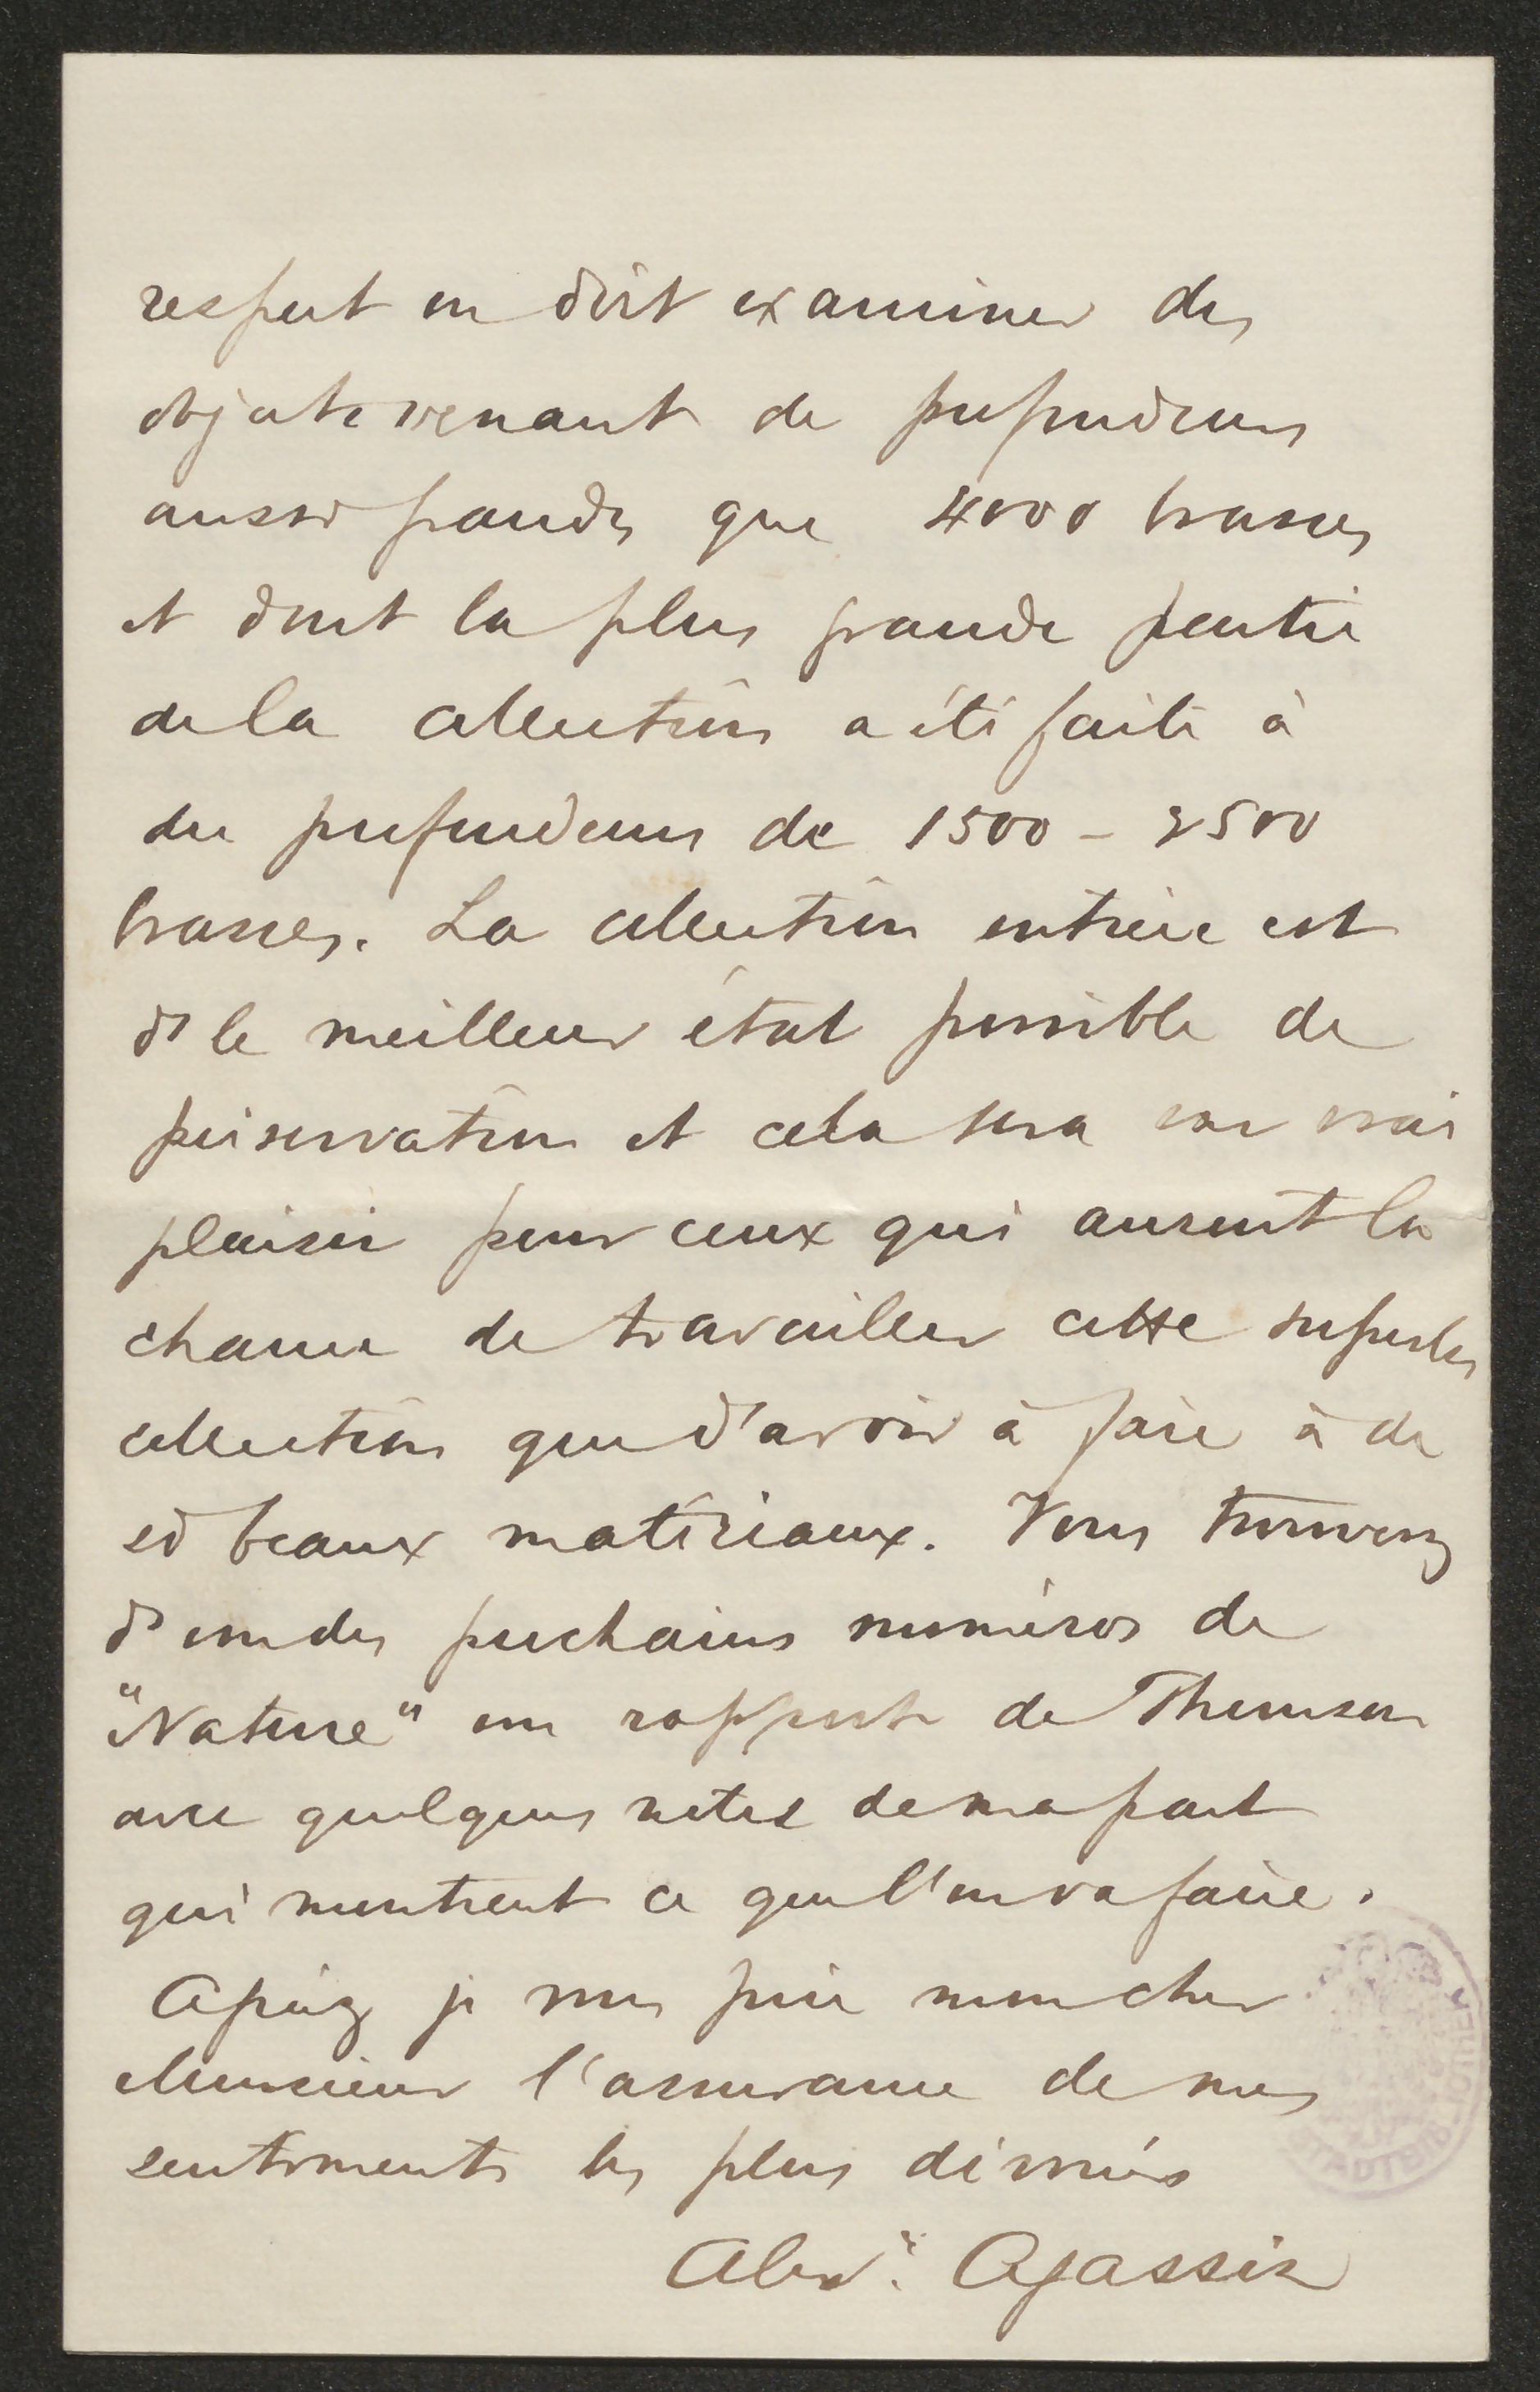 respect on doit examiner des
objets venant de profondeurs
aussi grandes que 4000 brasses
et dont la plus grande partie
de la collection a été faite à
des profondeurs de 1500 - 2500
brasses. La collection entière est
ds le meilleur état possible de
préservation et cela sera un vrai
plaisir pour ceux qui auront la
chance de travailler cette superbe
collection que d'avoir à faire à de
si beaux matériaux. Vous trouverez
ds un des prochains numéros de
"Nature" un rapport de Thomson
avec quelques notes de ma part
qui montrent ce que l'on va faire.
Agréez je vous prie mon cher
Monsieur l'assurance de mes
sentiments les plus dévoués
Alexr. Agassiz